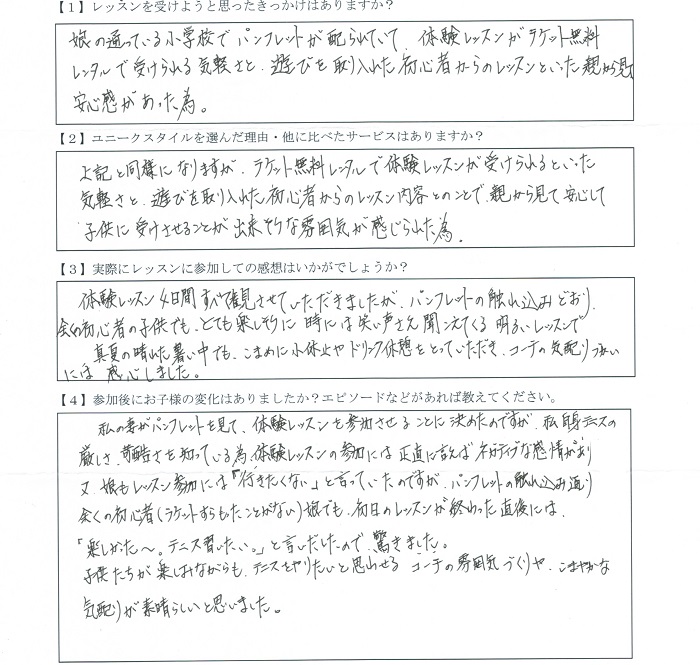 【1】レッスンを受けようと思ったきっかけはありますか？
娘の通っている小学校でパンフレットが配られていて、体験レッスンがラケット無料
レンタルで受けられる気軽さと、遊びを取り入れた初心者からのレッスンといった親から見て
安心感があった為。
【2】ユニークスタイルを選んだ理由・他に比べたサービスはありますか？
上記と同様になりますが、ラケット無料レンタルで体験レッスンが受けられるといった
気軽さと、遊びを取り入れた初心者からのレッスン内容とのことで、親から見て安心して
子供に受けさせることが出来そうな雰囲気が感じられた為。
【3】実際にレッスンに参加しての感想はいかがでしょうか？
体験レッスン4日間すべて観させていただきましたが、パンフレットの触れ込みどおり、
全くの初心者の子供でも、とても楽しそうに時には笑い声さえ聞こえてくる明るいレッスンで
真夏の晴れた暑い中でも、こまめに小休止やドリンク休憩をとっていただき、コーチの気配りづかい
には感心しました。
【4】参加後にお子様の変化はありましたか？エピソードなどがあれば教えてください。
私の妻がパンフレットを見て、体験レッスンを参加させることに決めたのですが、私自身テニスの
厳しさ、過酷さを知っている為、体験レッスンの参加には正直に言えばネガティブな感情があり
又、娘もレッスン参加には「行きたくない」と言っていたのですが、パンフレットの触れ込み通り
全くの初心者（ラケットすらもたことがない）娘でも、初日のレッスンが終わった直後には、
「楽しかった～。テニス習いたい。」と言いだしたので、驚きました。
子供たちが楽しみながらも、テニスをやりたいと思わせるコーチの雰囲気づくりや、こまやかな
気配りが素晴らしいと思いました。